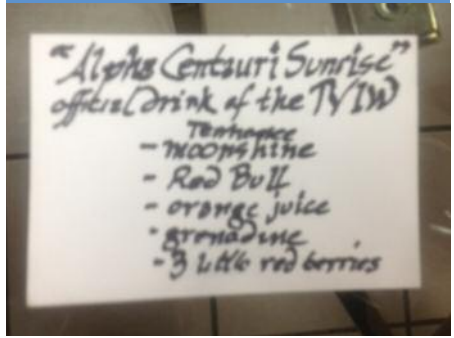 "Alpha Centauri Sunrise"
official drink of the TVIW
Tennessee
- moonshine
- Red Bull
- orange juice
- grenadine
- 3 little red berries